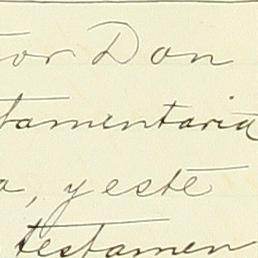 or Don
tamentaria
a, y este
testamen